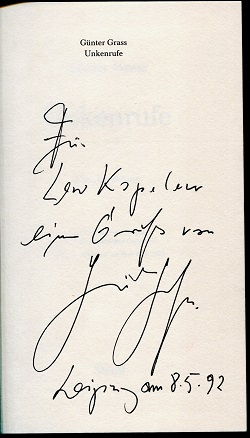 Günter Grass
Unkenrufe
Für
Lew Kopelew
einen Gruß von
Günter Grass
Leipzig am 8.5.92